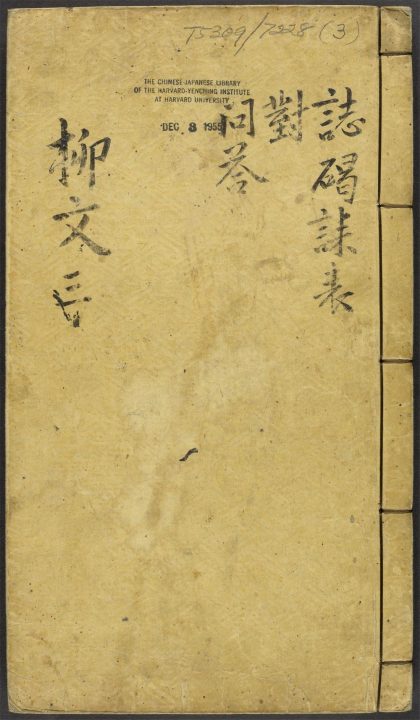 T5309/7228 (3)
THE CHINESE-JAPANESE LIBRARY
OF THE HARVARD-YENCHING INSTITUTE
AT HARVARD UNIVERSITY
DEC 8 1955
誌碣誄表
對
问答
柳文三